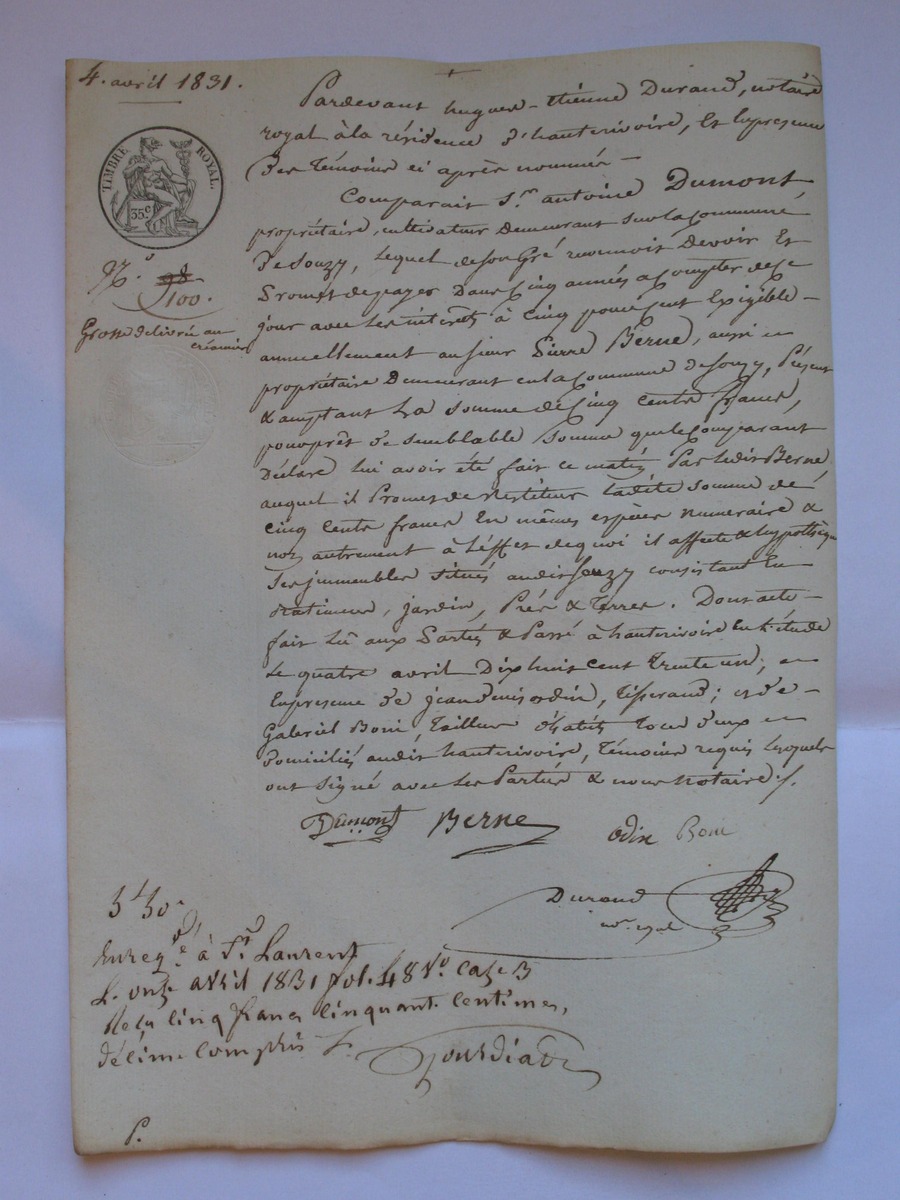 4. avril 1831.
TIMBRE ROYAL.
35 c
N.o 100.
Grosse delivrée au
créancier
Pardevant hugues-étienne Durand, notaire
royal à la résidence d'hauterivoire, Et En presence
Des Témoins ci après nommés —
Comparait Sr. antoine Dumont
propriétaire, cultivateur Demeurant sur la Commune
De Souzy, Lequel de son Gré reconnoit Devoir Et
Promet de payer Dans Cinq années a Compter de Ce
jour avec Les intérets à cinq pour cent Exigible —
annuellement au sieur Pierre Berne, aussi
propriétaire Demeurant en la Commune de Souzy, Présent
& acceptant La somme de Cinq Cents francs,
pour prêt de semblable somme que le Comparant
Déclare lui avoir été fait ce matin Par ledit Berne
auquel il Promet de Restituer ladite somme de
cinq cents francs En mêmes espèces numeraire &
non autrement à L'éffet de quoi il affecte & hypothèque
Ses immeubles situés audit Souzy consistant En
Batiments, jardin, Prés & Terres. Dont acte —
fait Lû aux Parties & Passé à hauterivoire En L'étude
Le quatre avril Dix huit cent Trente un; en
la presence De jean denis odin, Tisserand; et de —
Gabriel Boni, Tailleur d'habits Tous Deux
Domiciliés audit hauterivoire, Témoins requis Lesquels
ont signé avec Les Parties & nous Notaire ./.
Dumont Berne odin Boni
Durand
nre. royal
5 f 50 c
Enregé. à St. Laurent
L. onze avril 1831 fol. 48 Vo. Case 3
Reçu cinq francs cinquant. centimes,
décime compris
P.